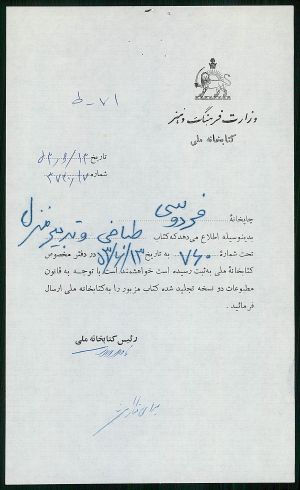 ط-۷۱
وزارت فرهنگ و هنر
کتابخانه ملی
تاریخ ۵۳/۹/۱۳
شماره
چاپخانهٔ فردوسی
بدینوسیله اطلاع می‌دهد که کتاب طباخی و تدبیر منزل
تحت شمارهٔ ۷۶۰ به تاریخ ۵۳/۹/۱۳ در دفتر مخصوص
کتابخانهٔ ملی به ثبت رسیده است خواهشمند است با توجه به قانون
مطبوعات دو نسخه تجلید شده کتاب مزبور را به کتابخانهٔ ملی ارسال
فرمائید.
رئیس کتابخانه ملی